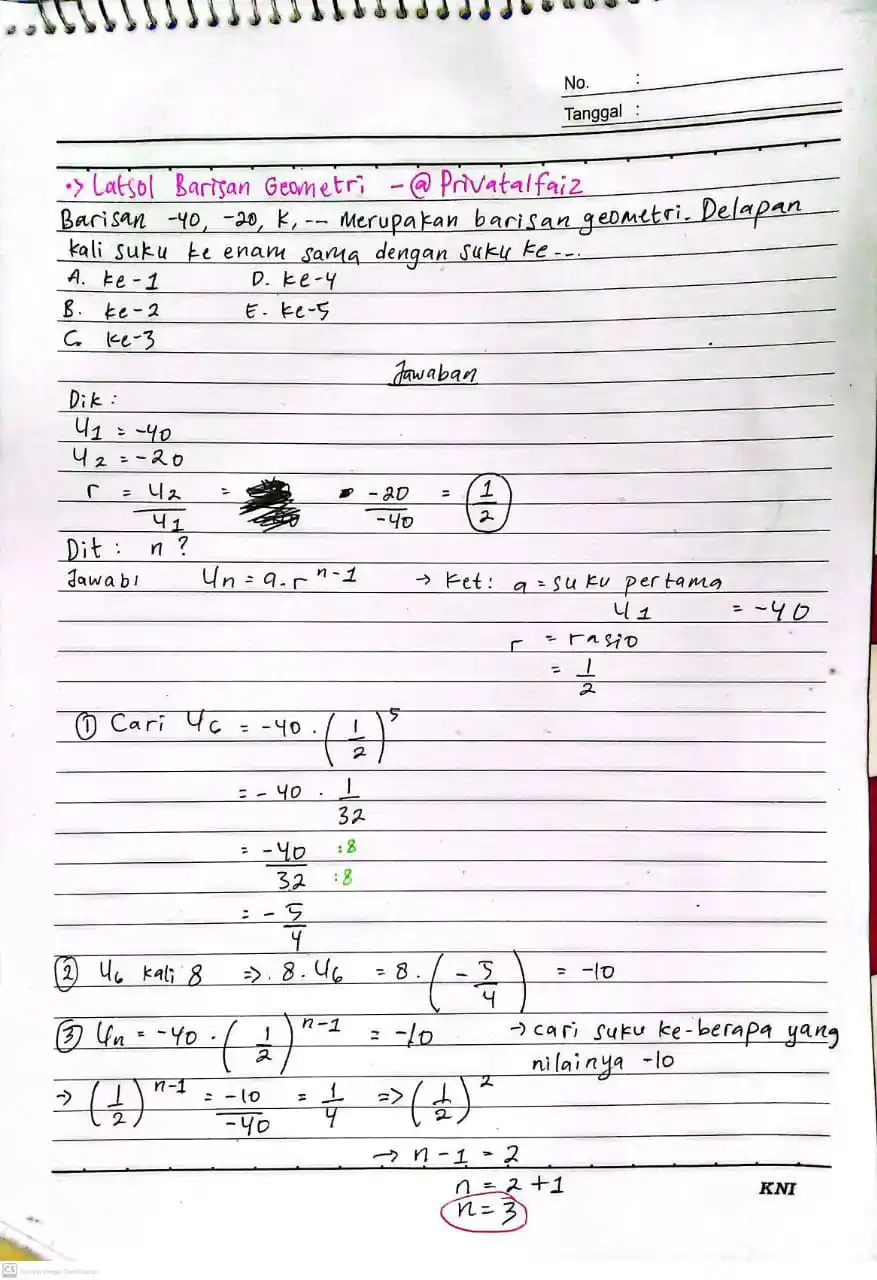 No. :
Tanggal :
•> Latsol Barisan Geometri - @Privatalfaiz
Barisan -40, -20, K, --- Merupakan barisan geometri. Delapan
kali suku ke enam sama dengan suku ke ---.
A. ke-1 D. ke-4
B. ke-2 E. ke-5
C. ke-3
Jawaban
Dik :
U1 = -40
U2 = -20
r = U2/U1 = -20/-40 = 1/2
Dit : n ?
Jawab: Un = a.r^n-1 → Ket: a = suku pertama
U1 = -40
r = rasio
= 1/2
① Cari U6 = -40 . (1/2)^5
= -40 . 1/32
= -40/32 :8 :8
= -5/4
② U6 kali 8 => . 8. U6 = 8 . (-5/4) = -10
③ Un = -40 . (1/2)^n-1 = -10 → cari suku ke-berapa yang
nilainya -10
→ (1/2)^n-1 = -10/-40 = 1/4 => (1/2)^2
→ n - 1 = 2
n = 2 + 1
n = 3
KNI
CS